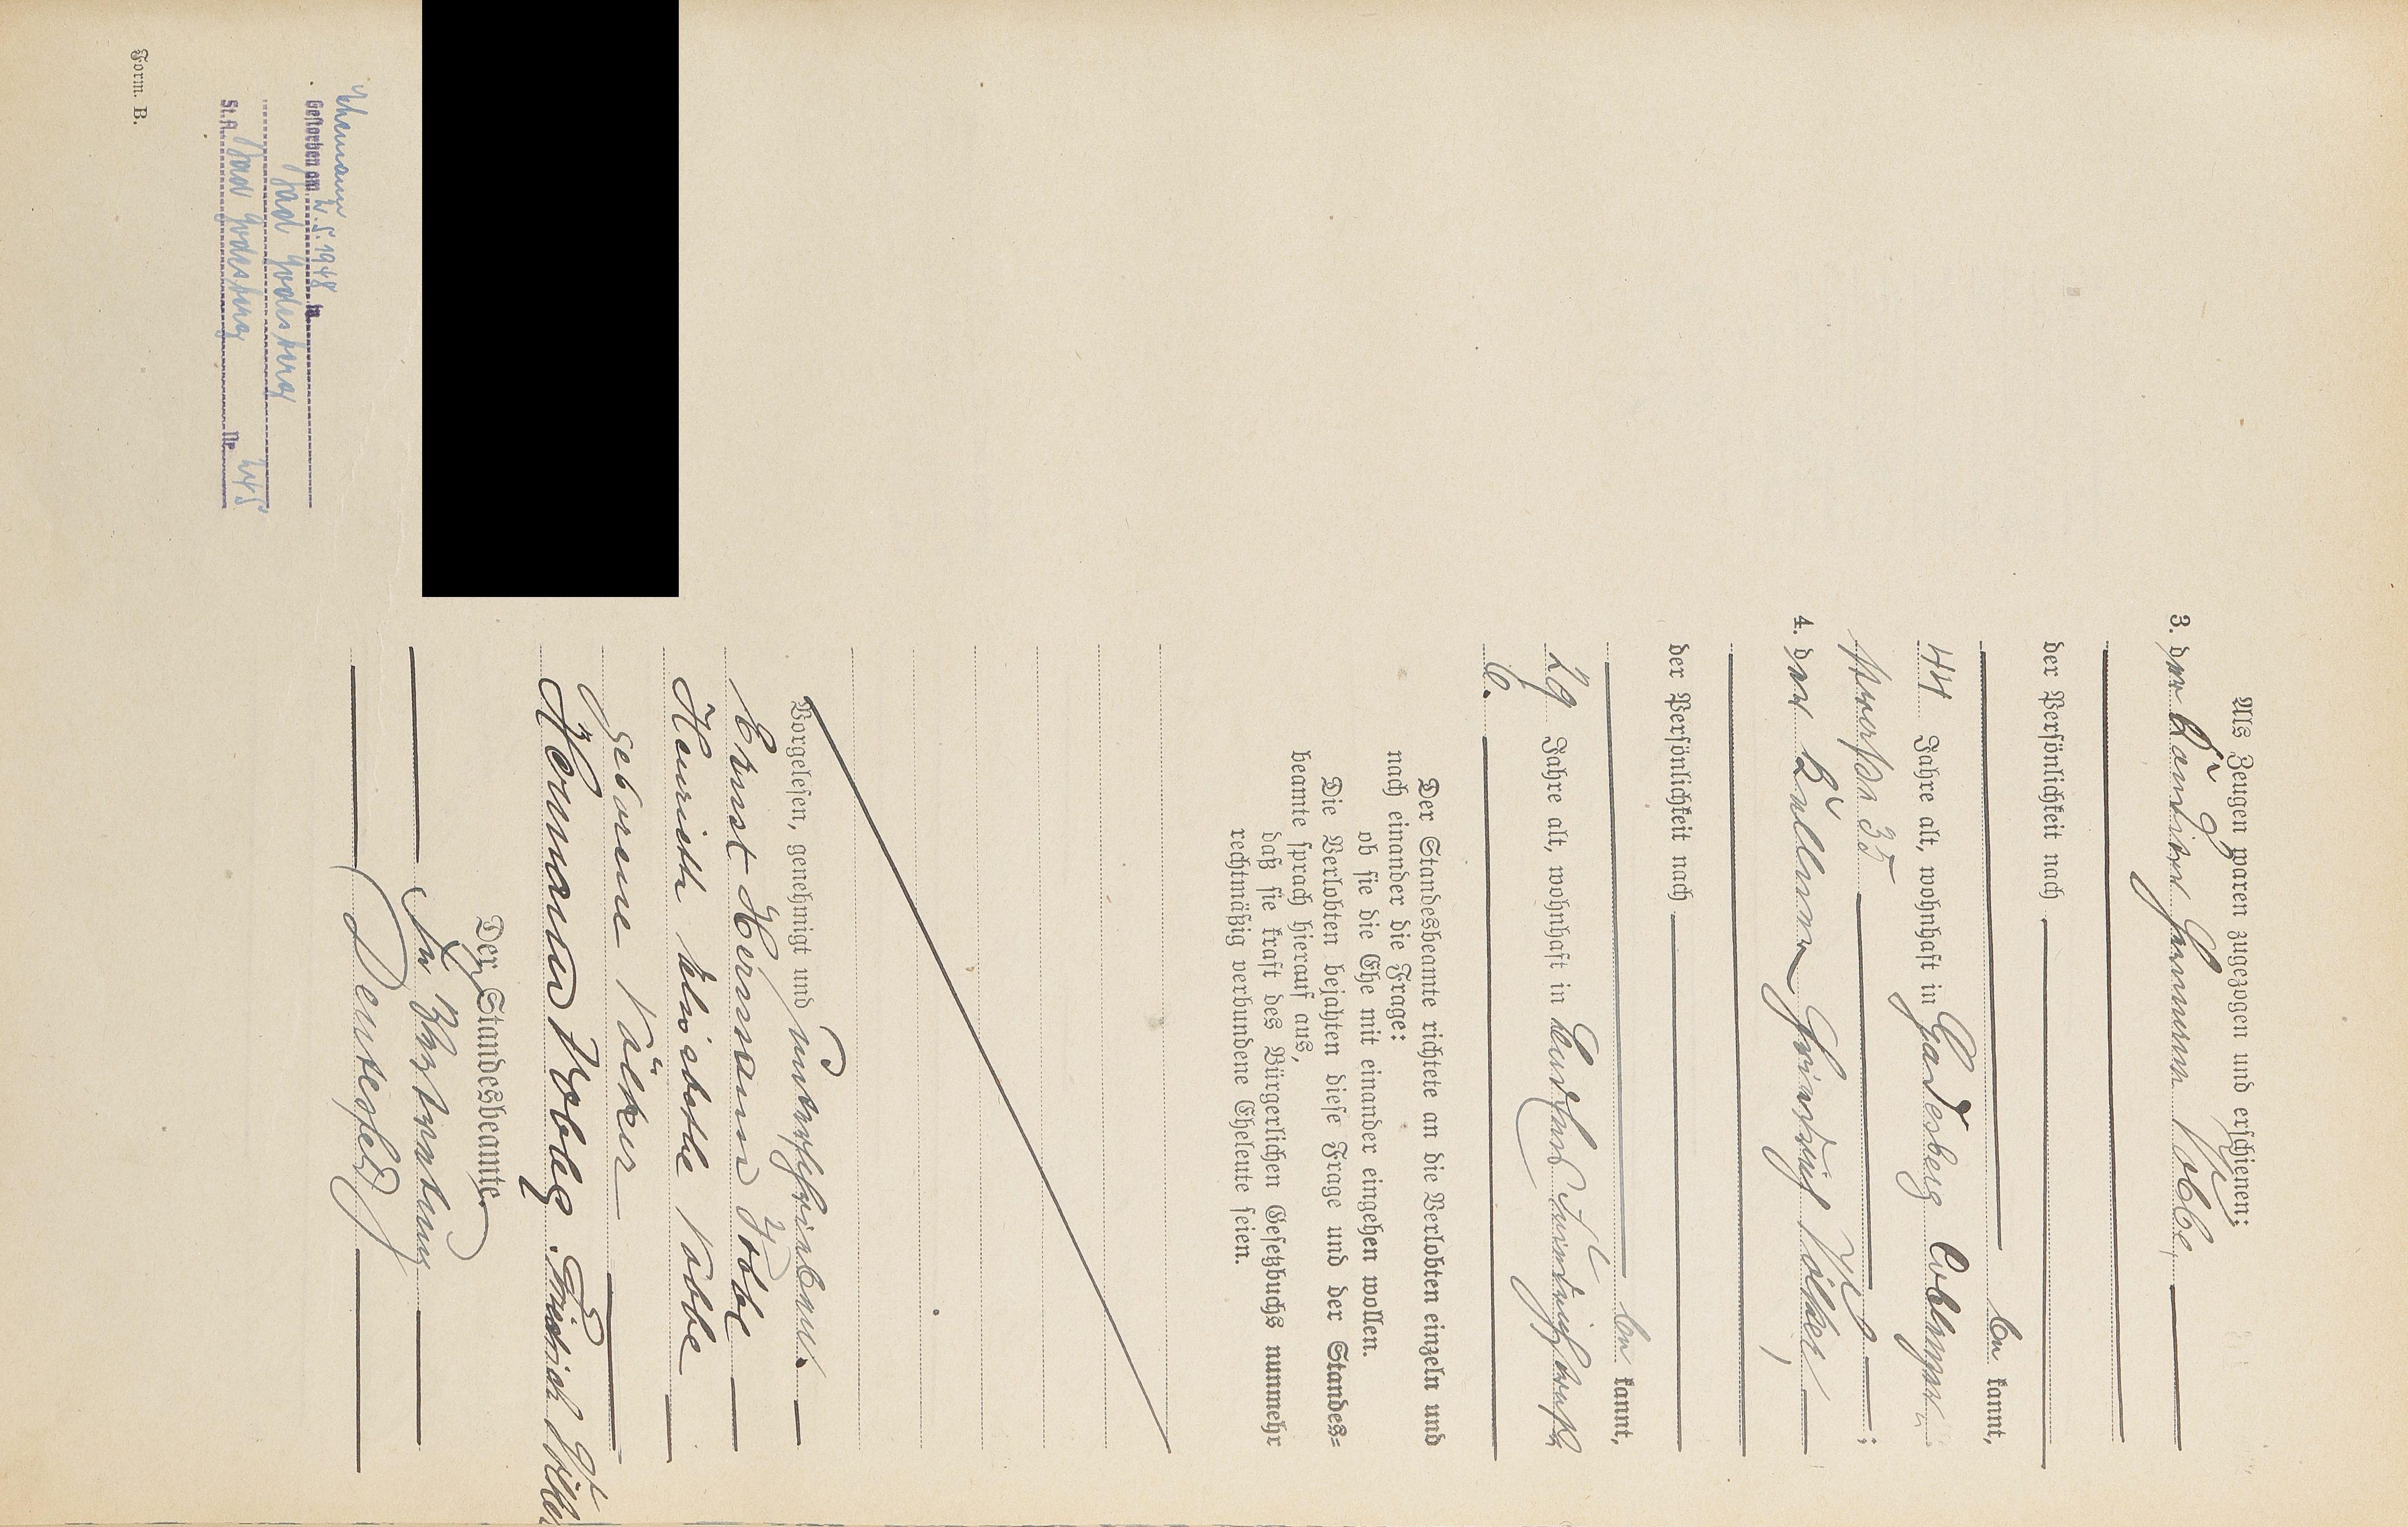 Als Zeugen waren zugezogen und erschienen:
3. der Bankier Hermann Wobbe,
der Persönlichkeit nach
be kannt,
44 Jahre alt, wohnhaft in Godesberg Coblenzer
strasse 35 ;
4. der Heinrich Völker,
der Persönlichkeit nach
be kannt,
29 Jahre alt, wohnhaft in
6.
Der Standesbeamte richtete an die Verlobten einzeln und
nach einander die Frage:
ob sie die Ehe mit einander eingehen wollen.
Die Verlobten bejahten diese Frage und der Standes=
beamte sprach hierauf aus,
daß sie kraft des Bürgerlichen Gesetzbuchs nunmehr
rechtmäßig verbundene Eheleute seien.
Vorgelesen, genehmigt und unterschrieben.
Ernst Hermann Wobbe
Henriette Elisabethe Wobbe
geborene Völker
Hermann Wobbe. Heinrich Völker
Der Standesbeamte.
In Vertretung
Dentesfeld
Ehemann
Gestorben am 2.5.1948 in
Bad Godesberg
St.A. Bad Godesberg Nr. 245
Form. B.